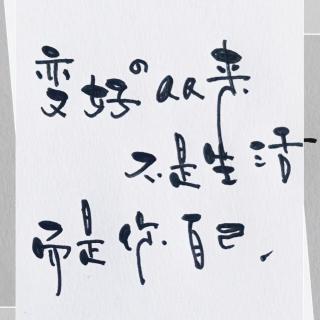 变好的从来
不是生活
而是你自己.